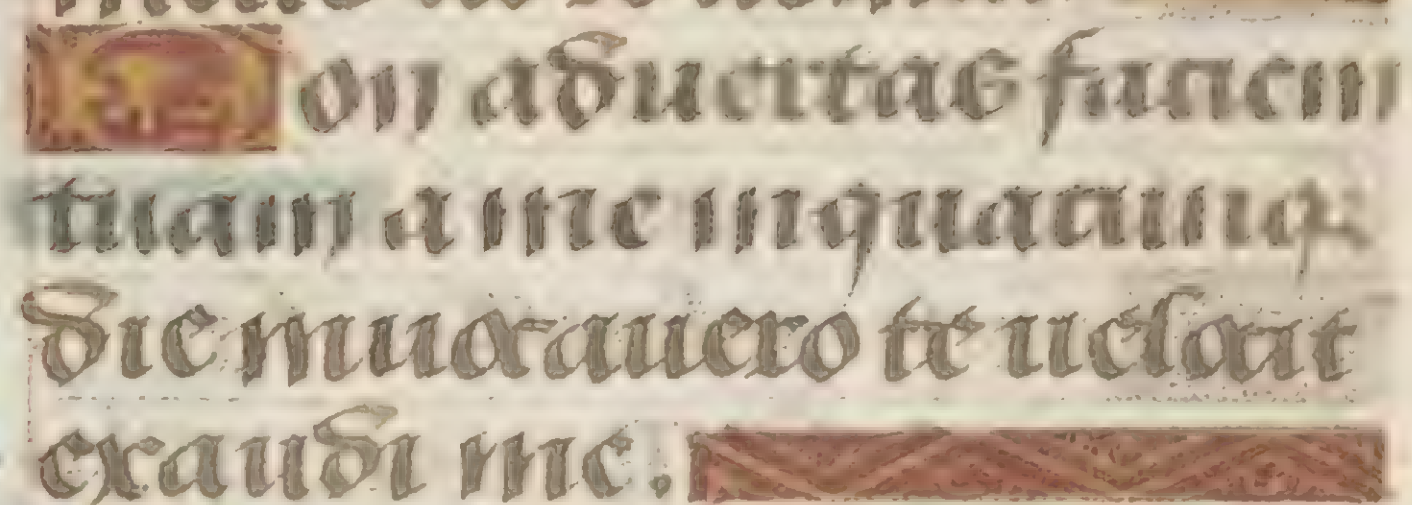 Non aduertas faciem
tuam a me inquacunq
die inuocauero te uelocit
exaudi me.